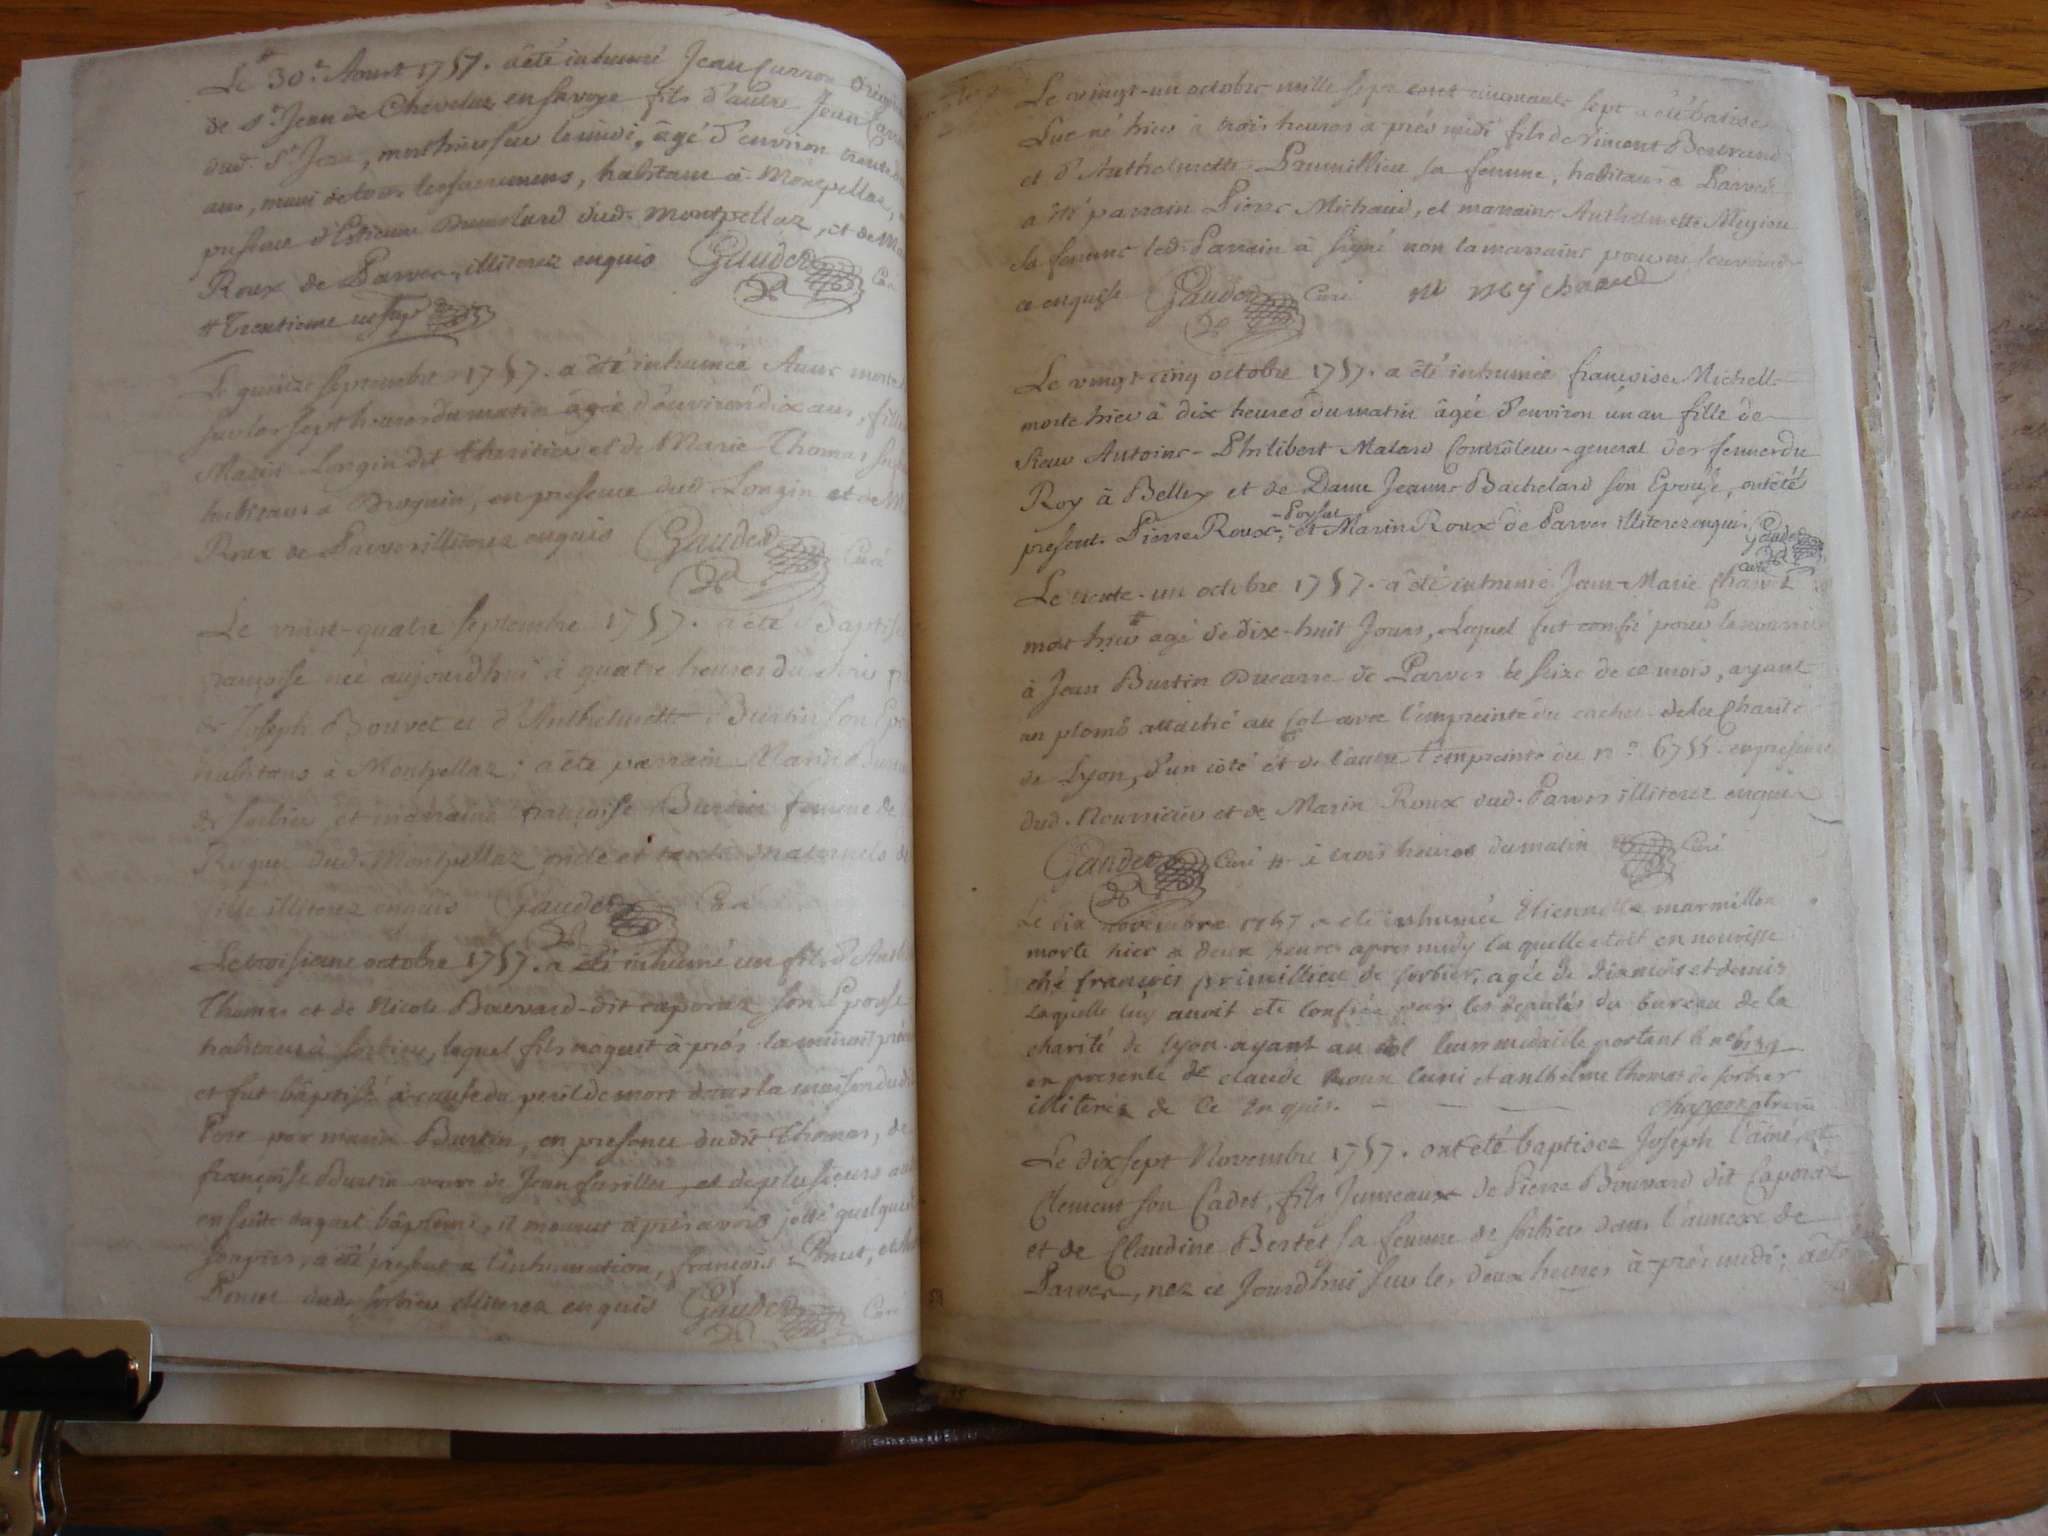 Le 30e Aoust 1757. a été inhumé Jean Curron
de St Jean de Chevelus en Savoye fils d'autre Jean
dud. St Jean, mort hier sur le midi, âgé d'environ trente
ans, muni de tous les sacremens, habitant à Montpellaz,
presence d'Estienne Dumolard dud. Montpellaz, et de
Roux de Parves, illiterez enquis Gauder Curé
# Trentieme
Le quinze septembre 1757. a été inhumée Anne morte
sur les sept heures du matin âgée d'environ dix ans, fille
Marin Longin dit et de Marie Thomas
habitans a Brognin, en presence dud. Longin et de
Roux de Parves illiterez enquis Gauder Curé
Le vingt-quatre septembre 1757. a été baptisée
françoise née aujourdhui à quatre heures du
de Joseph Bouvet et d'Anthelmette Burtin son
habitans à Montpellaz; a été parrain Marin
de sorbier et marraine françoise Burtin femme de
dud. Montpellaz oncle et tante maternels
illiterez enquis Gauder Curé
Le troisieme octobre 1757. a été inhumé un fils d'
Thomas et de Nicole Bouvard-dit caporaz son Epouse
habitans à sorbier, lequel fils naquit à près la minuit
et fut bâptisé à cause du peril de mort dans la maison dudit
Pere par Burtin, en presence dudit Thomas, de
françoise Burtin veuve de Jean, et de plusieurs
ensuite duquel bâptême, il mourut à près avoir jetté quelques
soupirs, a été present a l'inhumation, françois
dud. sorbier illiterez enquis Gauder Curé
Le vingt-un octobre mille sept cent cinquante sept a été batisé
Luc né hier à trois heures à près midi fils de Vincent Bertrand
et d'Anthelmette Primillieu sa femme, habitans a Parves
a été parrain Pierre Michaud, et marraine Anthelmette Meyion
sa femme led. Parrain à signé non la marraine pour ne sçavoir
ce enquise Gauder Curé m mychaud
Le vingt-cinq octobre 1757. a été inhumée françoise Michelle
morte hier à dix heures du matin âgée d'environ un an fille de
Sieur Antoine-Philibert Malard Contrôleur-general des fermes du
Roy à Belley et de Dame Jeanne Bachelard son Epouse, ont été
present. Pierre Roux-Poysat, et Marin Roux de Parves illiterez enquis. Gauder
curé
Le trente-un octobre 1757. a été inhumé Jean-Marie
mort hier # agé de dix-huit Jours, Lequel fut confié pour le nourrir
à Jean Burtin Ducarre de Parves le seize de ce mois, ayant
un plomb attaché au col avec l'empreinte du cachet de la Charité
de Lyon, d'un côté et de l'autre l'empreinte du n.o 6755. en presence
dud. Nourricier et de Marin Roux dud. Parves illiterez enquis
Gauder Curé # à trois heures du matin Curé
Le dix novembre 1757 a ete inhumée Etiennette marmillon
morte hier a deux heures apres midy laquelle etoit en nourisse
ché françois primillieu de sorbier, agée de dix mois et demis
Laquelle luy avoit ete confiée par les deputés du bureau de la
charité de lyon ayant au col leur medaille portant le no 6139
en presente de claude roux cuni et anthelme thomas de sorbier
illiterez de ce enquis.
Le dix sept Novembre 1757. ont été baptisez Joseph l'ainé, et
Clement son Cadet, fils Jumeaux de Pierre Bouvard dit Caporaz
et de Claudine Bertet sa femme de sorbier dans l'annexe de
Parves, nez ce Jourd'hui sur les deux heures à-près midi; a été